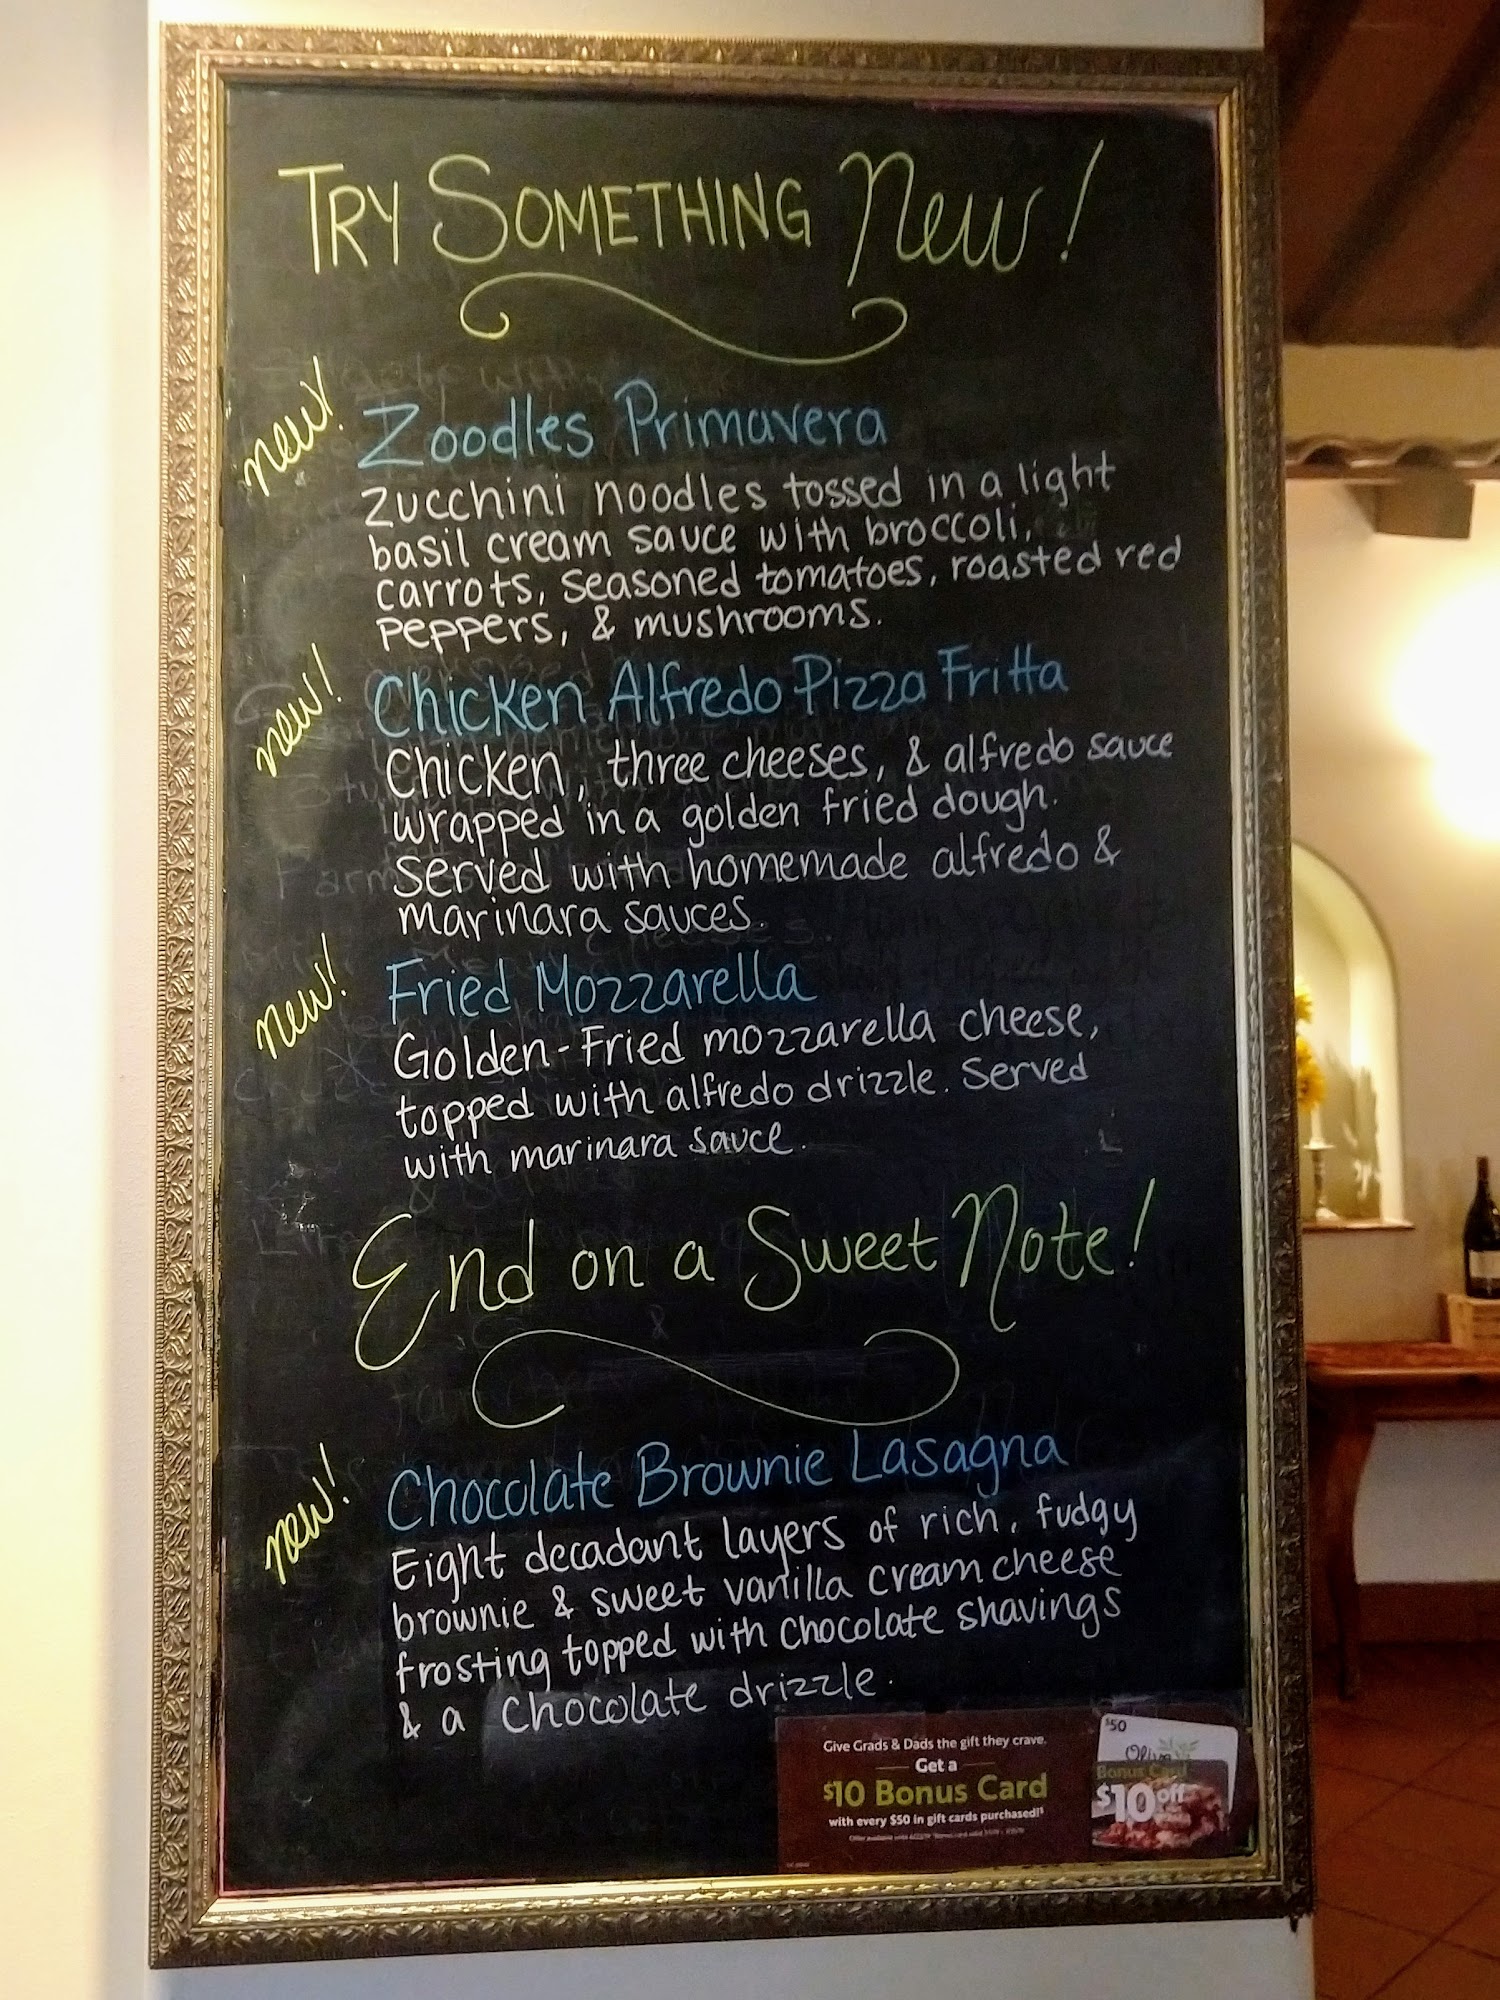 TRY SOMETHING new!
new!
Zoodles Primavera
zucchini noodles tossed in a light
basil cream sauce with broccoli,
carrots, seasoned tomatoes, roasted red
peppers, & mushrooms.
new!
Chicken Alfredo Pizza Fritta
Chicken, three cheeses, & alfredo sauce
wrapped in a golden fried dough.
Served with homemade alfredo &
marinara sauces.
new!
Fried Mozzarella
Golden-Fried mozzarella cheese,
topped with alfredo drizzle. Served
with marinara sauce.
End on a Sweet Note!
new!
Chocolate Brownie Lasagna
Eight decadant layers of rich, fudgy
brownie & sweet vanilla cream cheese
frosting topped with chocolate shavings
& a chocolate drizzle.
Give Grads & Dads the gift they crave.
Get a
$10 Bonus Card
with every $50 in gift cards purchased!
$50
Olive
Bonus Card
$10 off